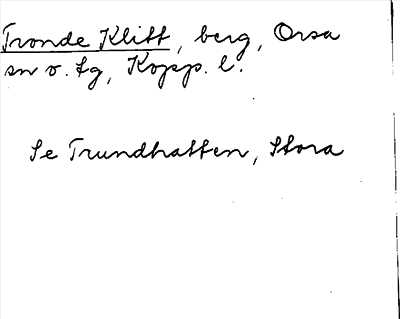 Tronde Klitt, berg, Orsa
sn o. tg, Kopp. l.
Se Trundhatten, Stora